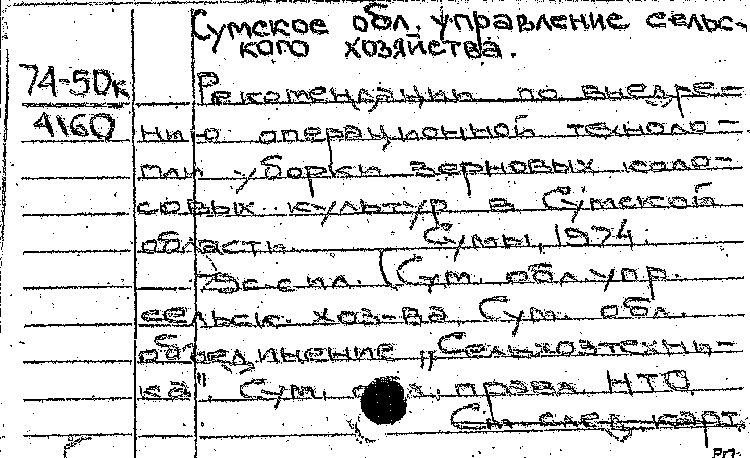 Сумское обл. управление сельс-
кого хозяйства.
74-50к
Рекомендации по внедре-
4160
нию операционной техноло-
гии уборки зерновых коло-
совых культур в Сумской
области. Сумы, 1974.
с ил. (Сум. обл. упр.
сельск. хоз-ва, Сум. обл.
объединение „Сельхозтехни-
ка", Сум. правл. НТО
См. след. карт.